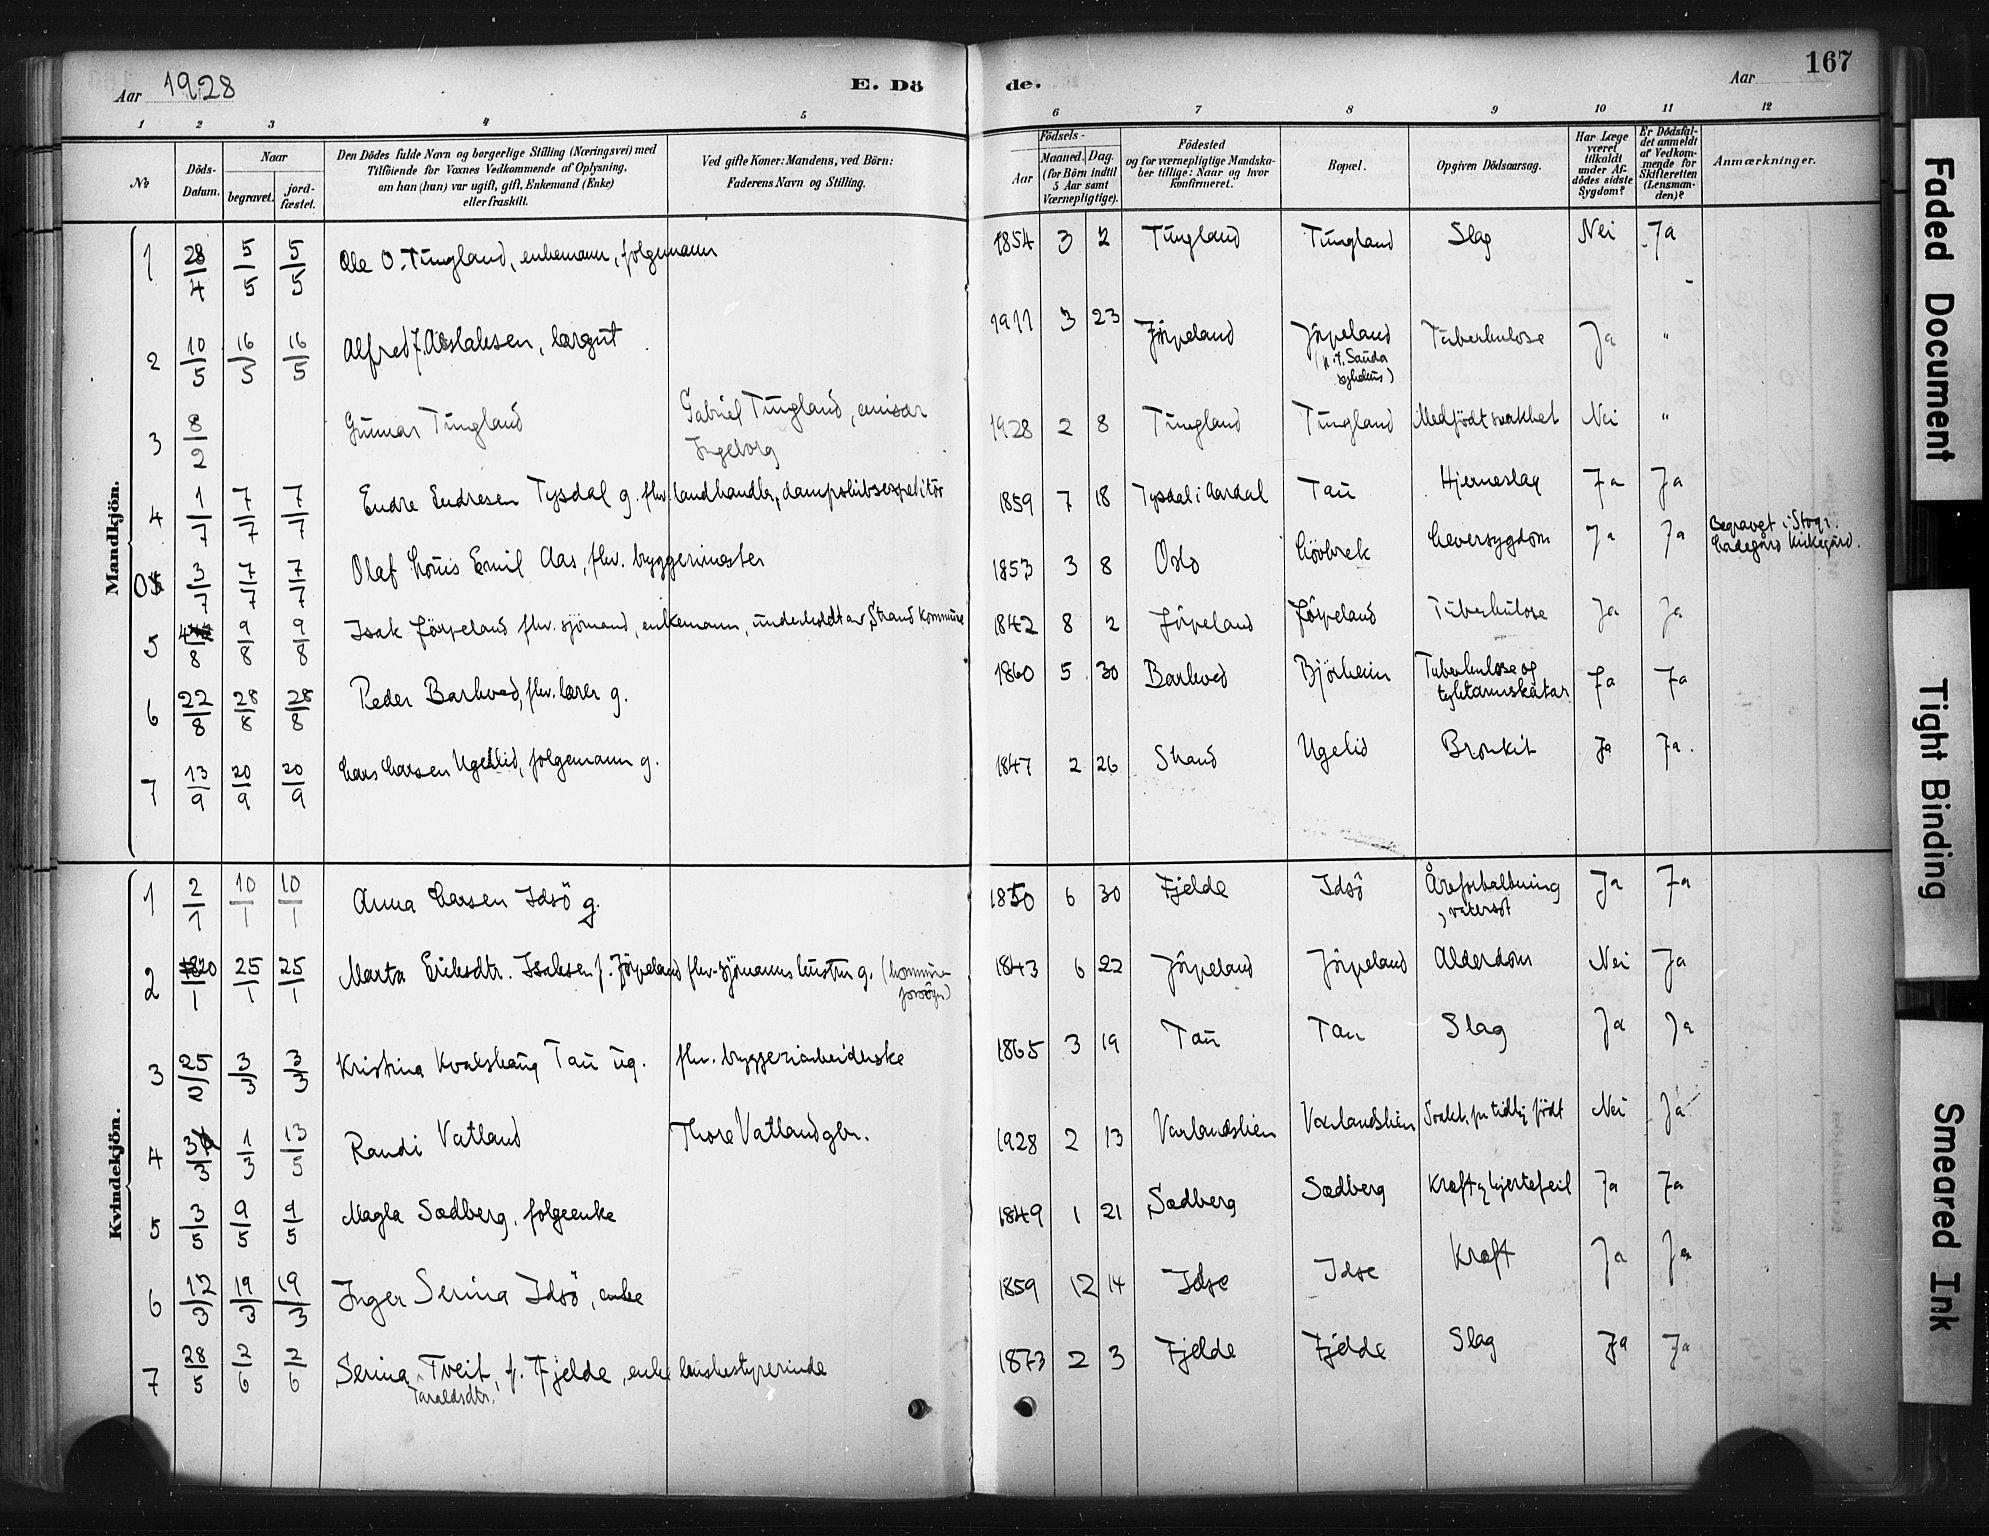 Aar 1928
E. Dö
de.
Aar
167
1 2 3 4 5 6 7 8 9 10 11 12
No
Döds-Datum.
Naar
begravet.
jord-fæstet.
Den Dödes fulde Navn og borgerlige Stilling (Næringsvei) med
Tilföiende for Voxnes Vedkommende af Oplysning,
om han (hun) var ugift, gift, Enkemand (Enke)
eller fraskilt.
Ved gifte Koner: Mandens, ved Börn:
Faderens Navn og Stilling.
Födsels-
Aar
Maaned. Dag.
(for Börn indtil
5 Aar samt
Værnepligtige).
Födested
og for værnepligtige Mandska-
ber tillige: Naar og hvor
konfirmeret.
Bopæl.
Opgiven Dödsaarsag.
Har Læge
været
tilkaldt
under Af-
dödes sidste
Sygdom?
Er Dödsfal-
det anmeldt
af Vedkom-
mende for
Skifteretten
(Lensman-
den)?
Anmærkninger.
Mandkjön.
1 28/4 5/5 5/5 Ole O. Tungland, enkemann, folgemann 1854 3 2 Tungland Tungland Slag Nei Ja
2 10/5 16/5 16/5 Alfred J. Aslaksen, lærgut 1911 3 23 Jörpeland Jörpeland Tuberkulose Ja "
(p.t. Sauda
sykehus)
3 8/2 Gunnar Tungland Gabriel Tungland, emisær 1928 2 8 Tungland Tungland Medfödt svakhet Nei "
Ingeborg
4 1/7 7/7 7/7 Endre Endresen Tysdal g. fhv. landhandler, dampskibsexpeditör 1859 7 18 Tysdal i Aardal Tau Hjerneslag Ja Ja
3/7 7/7 7/7 Olaf Louis Emil Aas, fhv. bryggerimester 1853 3 8 Oslo Lövbrek Leversygdom Ja Ja Begravet i Stvgr.
Ladegårds kirkegård.
5 9/8 9/8 Isak Jörpeland fhv. sjömand, enkemann, underholdt av Strand kommune 1842 8 2 Jörpeland Jörpeland Tuberkulose Ja Ja
6 22/8 28/8 28/8 Peder Barkved, fhv. lærer g. 1860 5 30 Barkved Björheim Tuberkulose og Ja Ja
tyktarmskatar
7 13/9 20/9 20/9 Lars Larsen Ugelid, folgemann g. 1847 2 26 Strand Ugelid Bronkit Ja Ja.
Kvindekjön.
1 2/1 10/1 10/1 Anna Larsen Idsö g. 1850 6 30 Fjelde Idsö Åreforkalkning Ja Ja
, vatersot
2 20/1 25/1 25/1 Marta Eriksdtr. Isaksen f. Jörpeland fhv. sjömanns hustru g. (kommune 1843 6 22 Jörpeland Jörpeland Alderdom Nei Ja
forsörget)
3 25/2 3/3 3/3 Kristina Kvalshaug Tau ug. fhv. bryggeriarbeiderske 1865 3 19 Tau Tau Slag Ja Ja
4 1/3 13/5 Randi Vatland Thore Vatland gbr. 1928 2 13 Varlandslien Varlandslien Svakh. for tidlig födt Nei Ja
5 3/5 9/5 9/5 Magla Sædberg, folgeenke 1849 1 21 Sædberg Sædberg Kræft og hjertefeil Ja Ja
6 12/3 19/3 19/3 Inger Serina Idsö, enke 1859 12 14 Idse Idse Kræft Ja Ja
7 28/5 2/6 2/6 Serina Tveit, f. Fjelde, enke husbestyrerinde 1873 2 3 Fjelde Fjelde Slag Ja Ja
Taraldsdtr.
Faded Document
Tight Binding
Smeared Ink